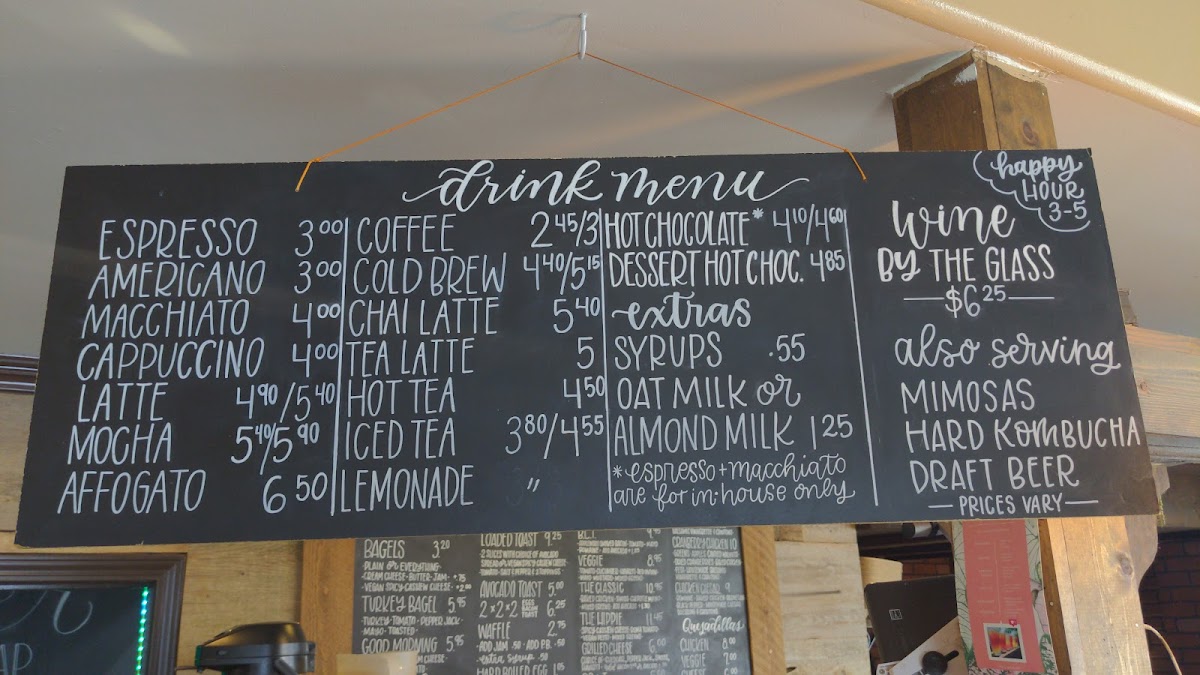 drink menu
ESPRESSO 3.00
AMERICANO 3.00
MACCHIATO 4.00
CAPPUCCINO 4.00
LATTE 4.90/5.40
MOCHA 5.40/5.90
AFFOGATO 6.50
COFFEE 2.45/3
COLD BREW 4.40/5.15
CHAI LATTE 5.40
TEA LATTE 5
HOT TEA 4.50
ICED TEA 3.80/4.55
LEMONADE "
HOT CHOCOLATE* 4.10/4.60
DESSERT HOT CHOC. 4.85
extras
SYRUPS .55
OAT MILK or
ALMOND MILK 1.25
*espresso + macchiato
are for in-house only
happy
HOUR
3-5
wine
BY THE GLASS
$6.25
also serving
MIMOSAS
HARD KOMBUCHA
DRAFT BEER
PRICES VARY
BAGELS 3.20
PLAIN OR EVERYTHING
-CREAM CHEESE-BUTTER-JAM +.75
-VEGAN SPICY CASHEW CHEESE +2.00
TURKEY BAGEL 5.95
TURKEY-TOMATO-PEPPER JACK
-MAYO-TOASTED-
GOOD MORNING 5.95
LOADED TOAST 9.25
AVOCADO TOAST 5.00
2x2x2 EGGS BACON TOAST 6.25
WAFFLE 2.75
-ADD JAM .50 -ADD P.B. .50
-extra syrup .50
HARD BOILED EGG 1.05
VEGGIE 8.95
THE CLASSIC 10.95
THE HIPPIE 11.45
GRILLED CHEESE 6.00
Quesadillas
CHICKEN 8.00
VEGGIE 7.00
CHEESE